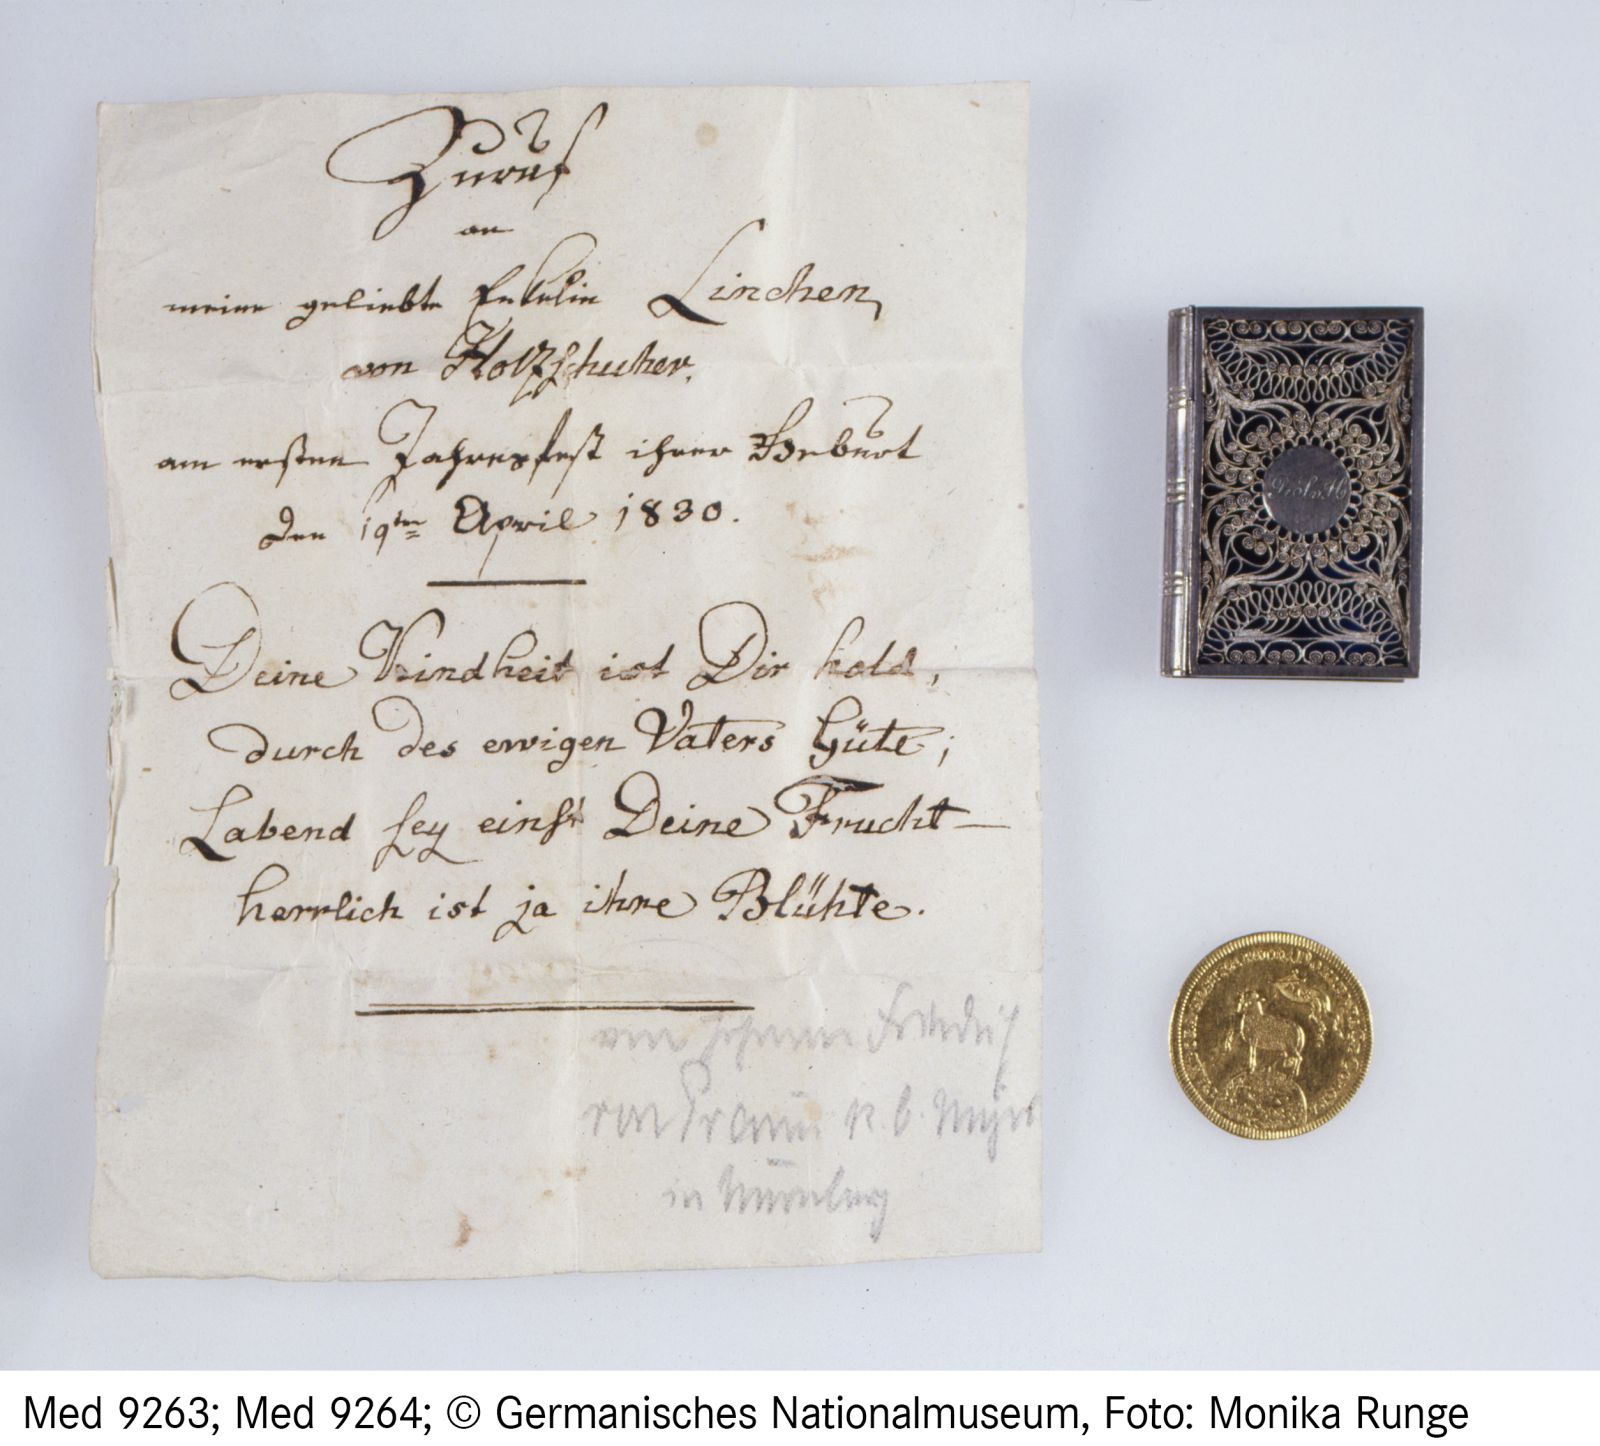 Zuruf
an
meine geliebte Enkelin Linchen
von Holzschuher,
am ersten Jahresfest ihrer Geburt
den 19ten April 1830.
Deine Kindheit ist Dir hold,
durch des ewigen Vaters Güte;
Labend sey einst Deine Frucht—
herrlich ist ja ihre Blühte.
von Johann Friedrich
von Praun K. b.
in Nürnberg
Med 9263; Med 9264; © Germanisches Nationalmuseum, Foto: Monika Runge